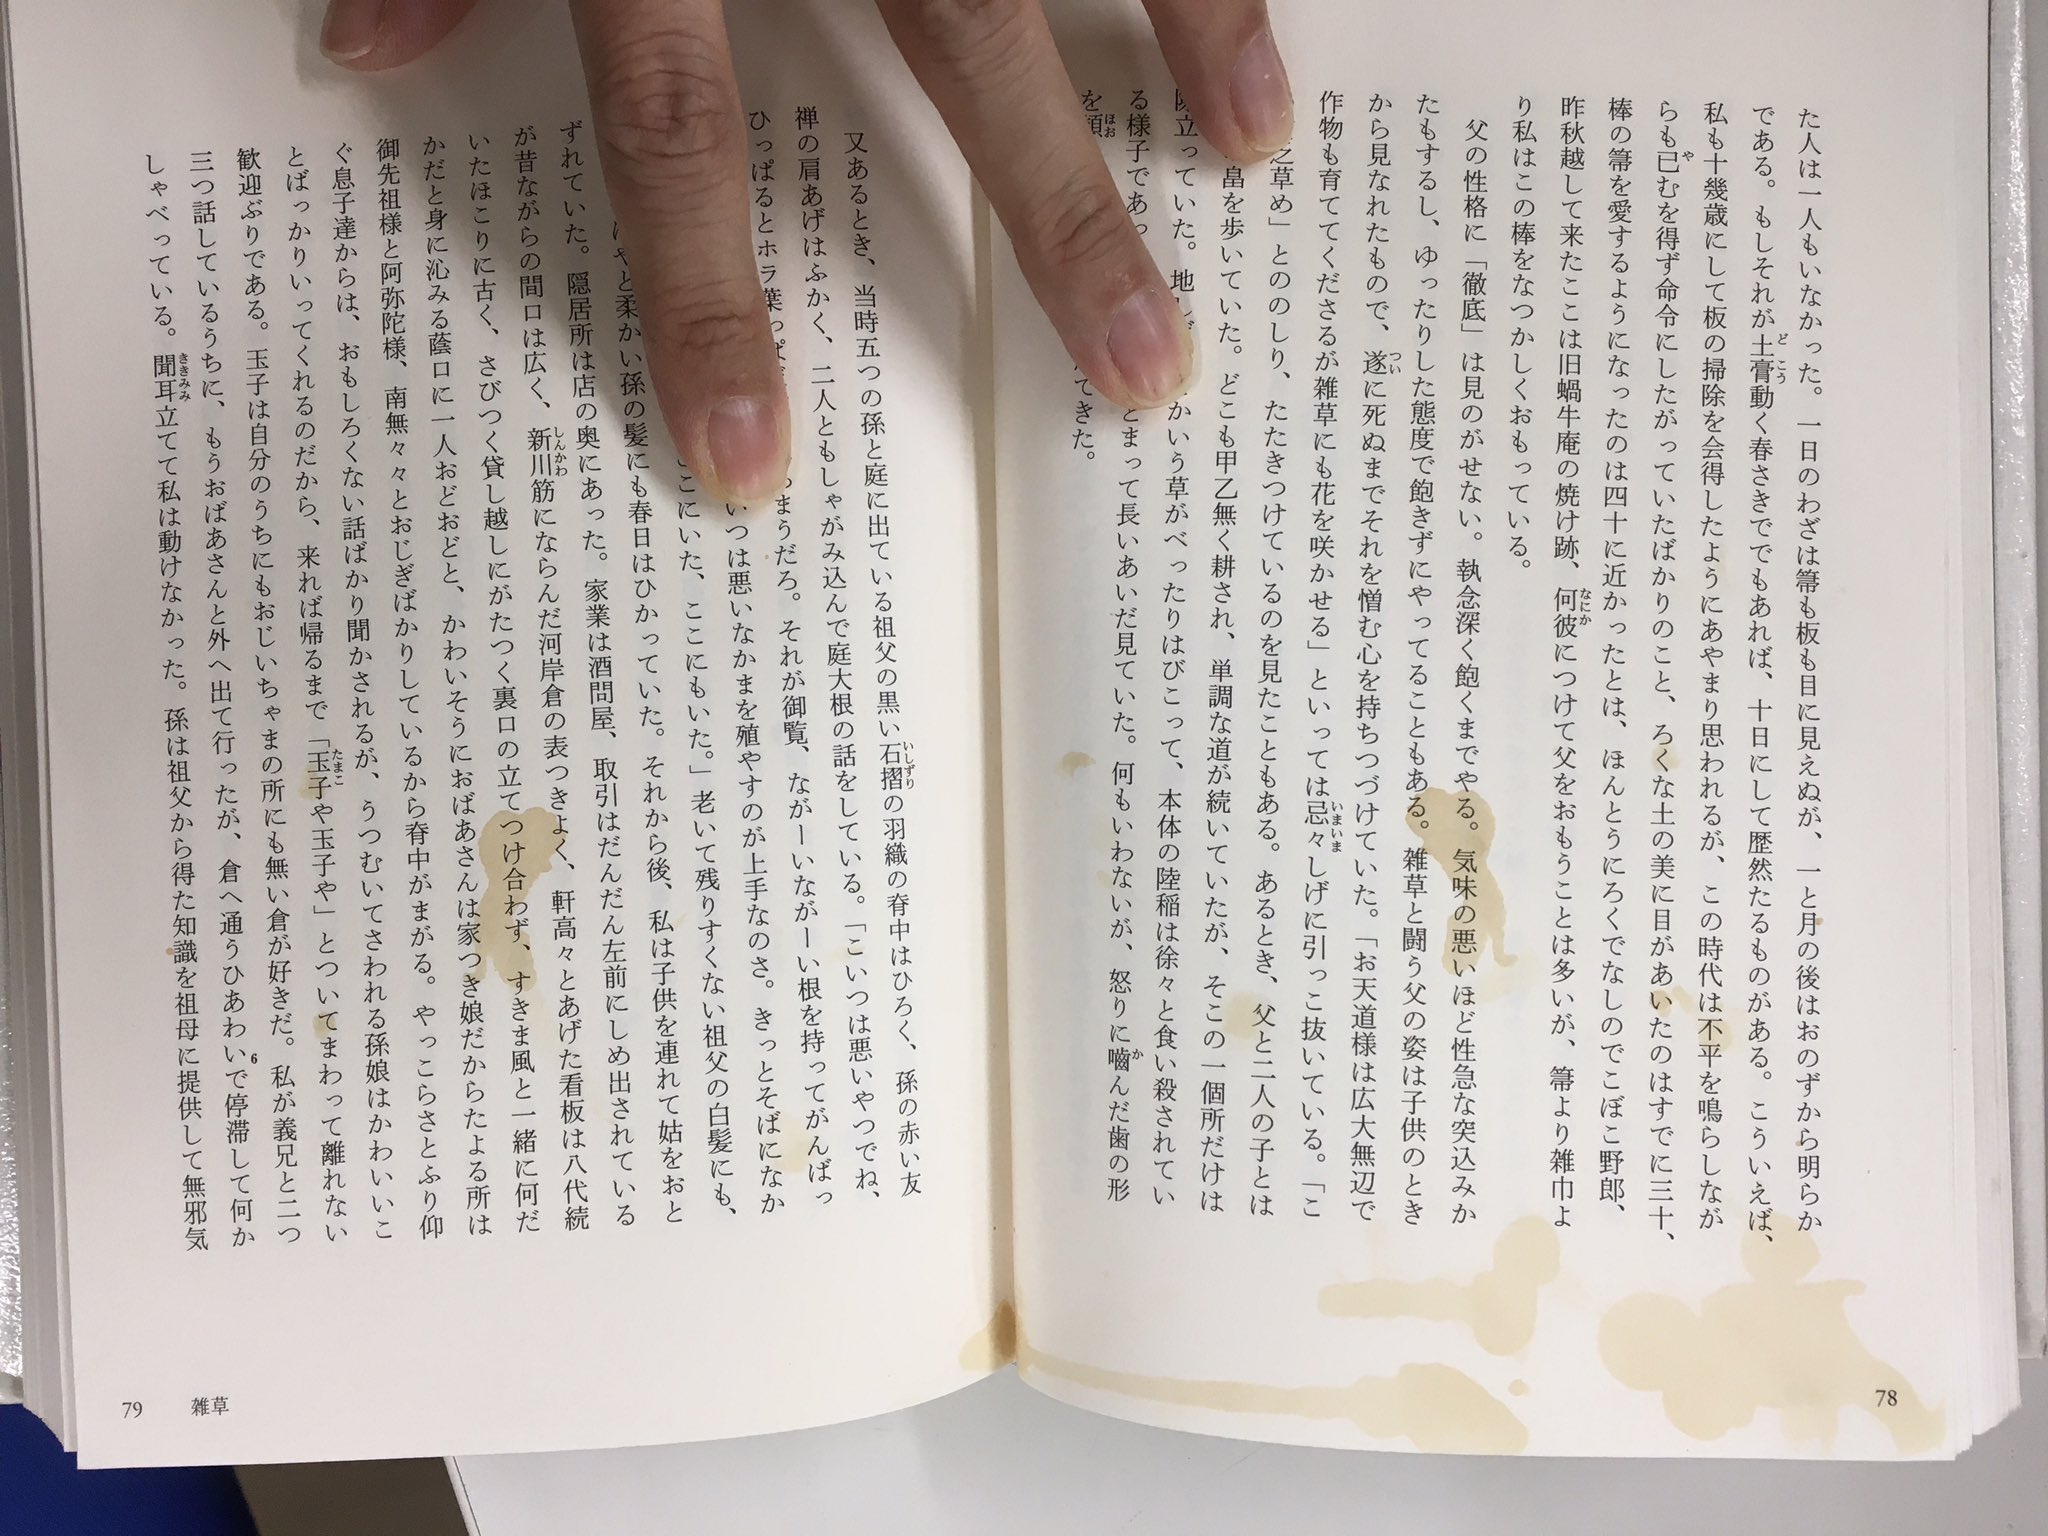 た人は一人もいなかった。一日のわざは箒も板も目に見えぬが、一と月の後はおのずから明らか
である。もしそれが土膏動く春さきででもあれば、十日にして歴然たるものがある。こういえば、
私も十幾歳にして板の掃除を会得したようにあやまり思われるが、この時代は不平を鳴らしなが
らも已むを得ず命令にしたがっていたばかりのこと、ろくな土の美に目があいたのはすでに三十、
棒の箒を愛するようになったのは四十に近かったとは、ほんとうにろくでなしのでこぼこ野郎、
昨秋越して来たここは旧蝸牛庵の焼け跡、何彼につけて父をおもうことは多いが、箒より雑巾よ
り私はこの棒をなつかしくおもっている。
父の性格に「徹底」は見のがせない。執念深く飽くまでやる。気味の悪いほど性急な突込みか
たもするし、ゆったりした態度で飽きずにやってることもある。雑草と闘う父の姿は子供のとき
から見なれたもので、遂に死ぬまでそれを憎む心を持ちつづけていた。「お天道様は広大無辺で
作物も育ててくださるが雑草にも花を咲かせる」といっては忌々しげに引っこ抜いている。「こ
之草め」とののしり、たたきつけているのを見たこともある。あるとき、父と二人の子とは
畠を歩いていた。どこも甲乙無く耕され、単調な道が続いていたが、そこの一個所だけは
立っていた。地 かいう草がべったりはびこって、本体の陸稲は徐々と食い殺されてい
る様子であっ とまって長いあいだ見ていた。何もいわないが、怒りに嚙んだ歯の形
を てきた。
78
又あるとき、当時五つの孫と庭に出ている祖父の黒い石摺の羽織の脊中はひろく、孫の赤い友
禅の肩あげはふかく、二人ともしゃがみ込んで庭大根の話をしている。「こいつは悪いやつでね、
ひっぱるとホラ葉っぱ まうだろ。それが御覧、ながーいながーい根を持ってがんばっ
いつは悪いなかまを殖やすのが上手なのさ。きっとそばになか
ここにいた、ここにもいた。」老いて残りすくない祖父の白髪にも、
やと柔かい孫の髪にも春日はひかっていた。それから後、私は子供を連れて姑をおと
ずれていた。隠居所は店の奥にあった。家業は酒問屋、取引はだんだん左前にしめ出されている
が昔ながらの間口は広く、新川筋にならんだ河岸倉の表つきよく、軒高々とあげた看板は八代続
いたほこりに古く、さびつく貸し越しにがたつく裏口の立てつけ合わず、すきま風と一緒に何だ
かだと身に沁みる蔭口に一人おどおどと、かわいそうにおばあさんは家つき娘だからたよる所は
御先祖様と阿弥陀様、南無々々とおじぎばかりしているから脊中がまがる。やっこらさとふり仰
ぐ息子達からは、おもしろくない話ばかり聞かされるが、うつむいてさわれる孫娘はかわいいこ
とばっかりいってくれるのだから、来れば帰るまで「玉子や玉子や」とついてまわって離れない
歓迎ぶりである。玉子は自分のうちにもおじいちゃまの所にも無い倉が好きだ。私が義兄と二つ
三つ話しているうちに、もうおばあさんと外へ出て行ったが、倉へ通うひあわい6で停滞して何か
しゃべっている。聞耳立てて私は動けなかった。孫は祖父から得た知識を祖母に提供して無邪気
79 雑草